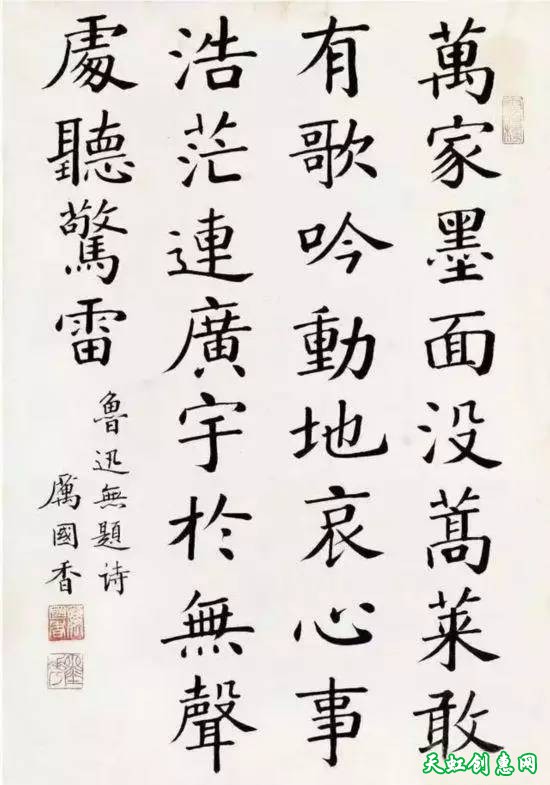 萬家墨面没蒿萊敢
有歌吟動地哀心事
浩茫連廣宇於無聲
處聽驚雷
魯迅無題诗
厲國香
天虹创惠网